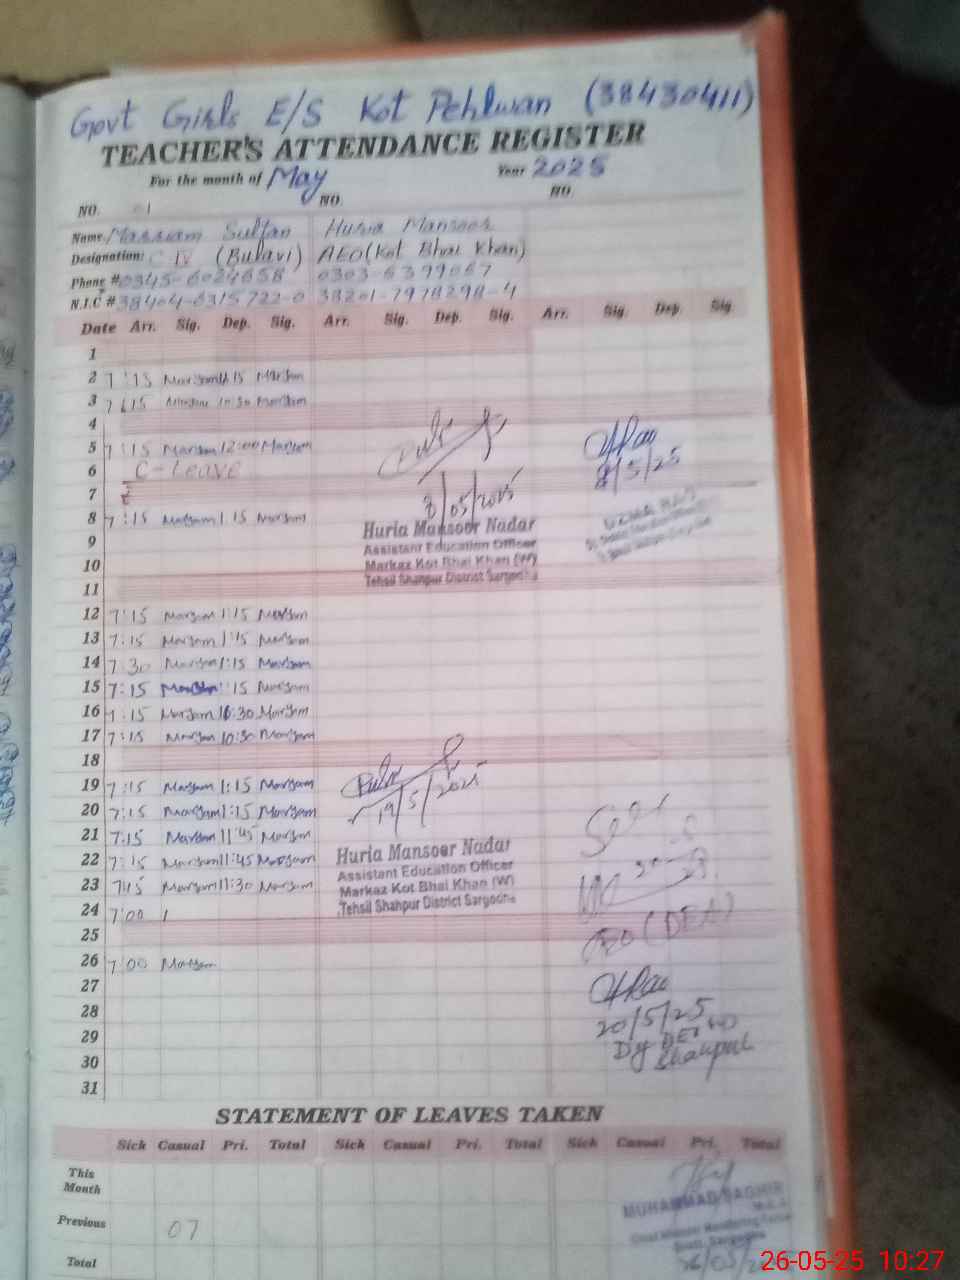 Govt Girls E/S Kot Pehlwan (38430411)
TEACHER'S ATTENDANCE REGISTER
For the month of May Year 2025
NO. 01 NO. NO.
Name Marriam Sultan Huria Mansoor
Designation: C-IV (Bulavi) AEO (Kot Bhai Khan)
Phone # 0345-6024658 0303-6399067
N.I.C # 38404-6315722-0 38201-7978298-4
Date Arr. Sig. Dep. Sig. Arr. Sig. Dep. Sig. Arr. Sig. Dep. Sig.
1
2 7:15 Maryam 1:15 Maryam
3 7:15 10:30 Maryam
4
5 7:15 Maryam 12:00 Maryam
6 C-Leave
8/5/25
7
8/05/2025
8 7:15 Maryam 1:15 Maryam
Huria Mansoor Nadar
9
Assistant Education Officer
10
Markaz Kot Bhai Khan (W)
Tehsil Shahpur District Sargodha
11
12 7:15 Maryam 1:15 Maryam
13 7:15 Maryam 1:15 Maryam
14 7:30 Maryam 1:15 Maryam
15 7:15 Maryam 1:15 Maryam
16 7:15 Maryam 10:30 Maryam
17 7:15 Maryam 10:30 Maryam
18
19 7:15 Maryam 1:15 Maryam
19/5/2025
20 7:15 Maryam 1:15 Maryam
21 7:15 Maryam 11:45 Maryam
Huria Mansoor Nadar
22 7:15 Maryam 11:45 Maryam
Assistant Education Officer
23 7:15 Maryam 11:30 Maryam
Markaz Kot Bhai Khan (W)
Tehsil Shahpur District Sargodha
24 7:00
25
CEO (DEA)
26 7:00 Maryam
27
28
20/5/25
29
Dy DEO
Shahpur
30
31
STATEMENT OF LEAVES TAKEN
Sick Casual Pri. Total Sick Casual Pri. Total Sick Casual Pri. Total
This
Month
MUHAMMAD SAGHIR
Previous 07
Total
26-05-25 10:27